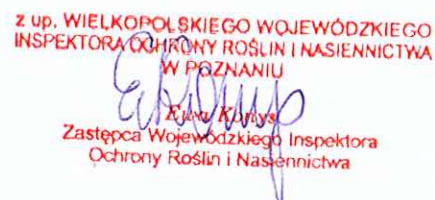 z up. WIELKOPOLSKIEGO WOJEWÓDZKIEGO
INSPEKTORA OCHRONY ROŚLIN I NASIENNICTWA
W POZNANIU
Ewa Kortys
Zastępca Wojewódzkiego Inspektora
Ochrony Roślin i Nasiennictwa